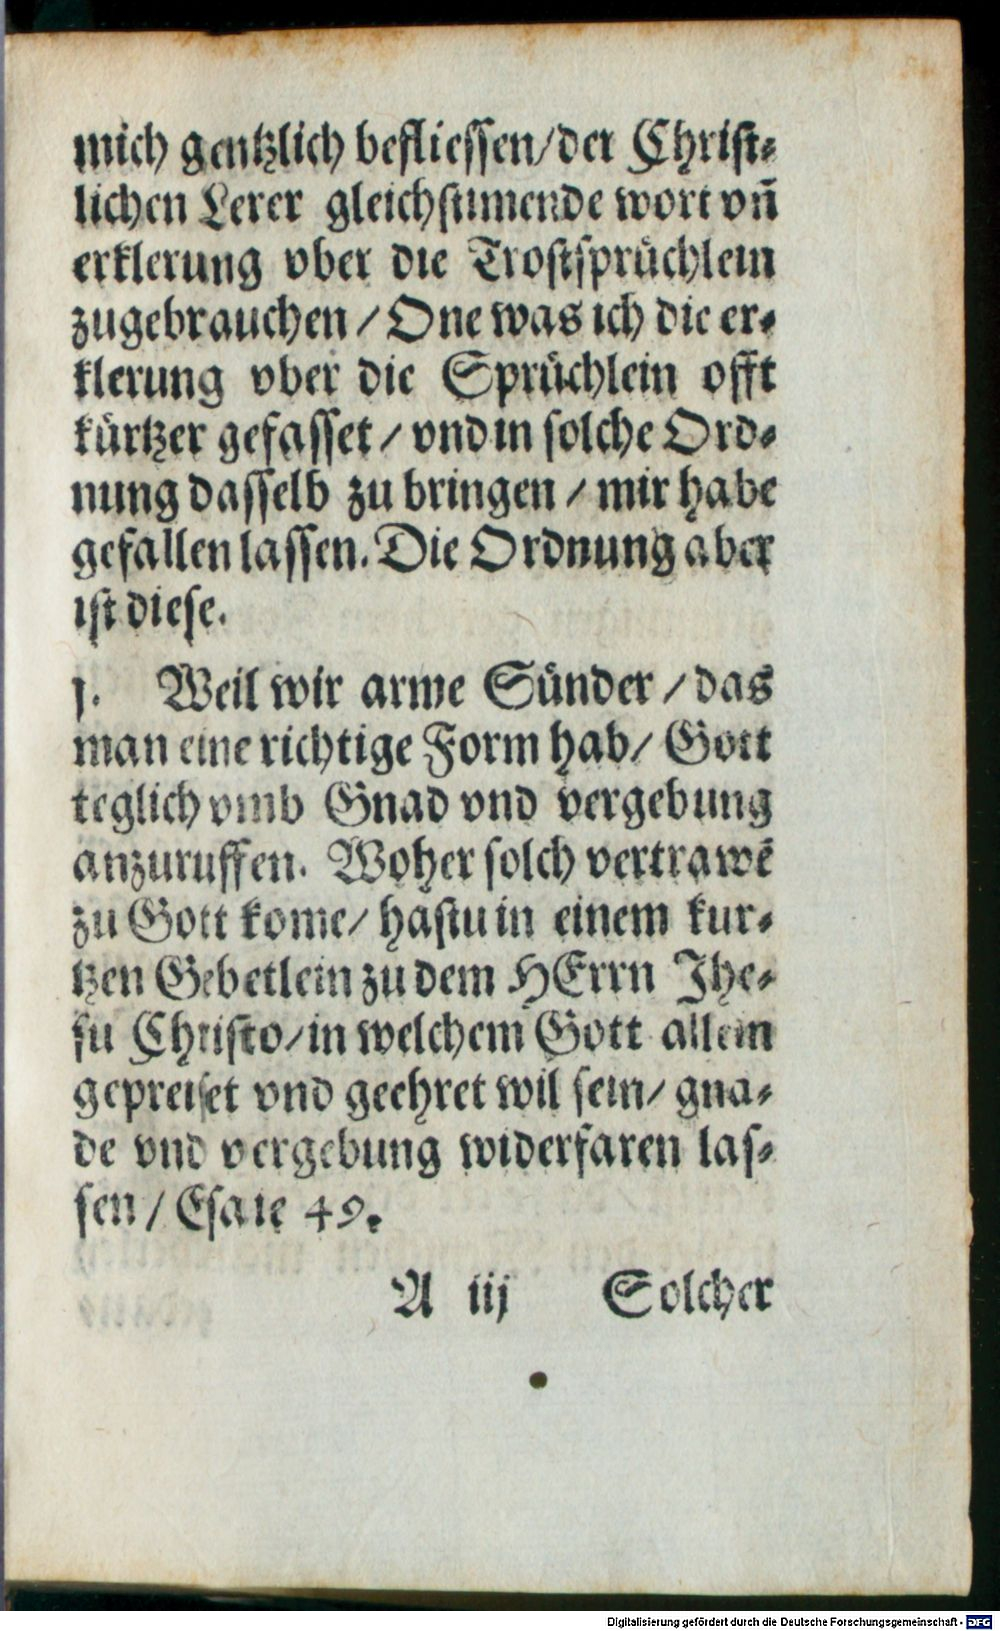 mich gentzlich befliessen/der Christ⸗
lichen Lerer gleichstimende wort vn̄
erklerung vber die Trostsprüchlein
zugebrauchen / One was ich die er⸗
klerung vber die Sprüchlein offt
kürtzer gefasset / vnd in solche Ord⸗
nung dasselb zu bringen / mir habe
gefallen lassen. Die Ordnung aber
ist diese.
j. Weil wir arme Sünder / das
man eine richtige Form hab/ Gott
teglich vmb Gnad vnd vergebung
anzuruffen. Woher solch vertrawē
zu Gott kome/ hastu in einem kur⸗
tzen Gebetlein zu dem HErrn Jhe⸗
su Christo/in welchem Gott allein
gepreiset vnd geehret wil sein/ gna⸗
de vnd vergebung widerfaren las⸗
sen / Esaie 49.
A iij Solcher
Digitalisierung gefördert durch die Deutsche Forschungsgemeinschaft - DFG